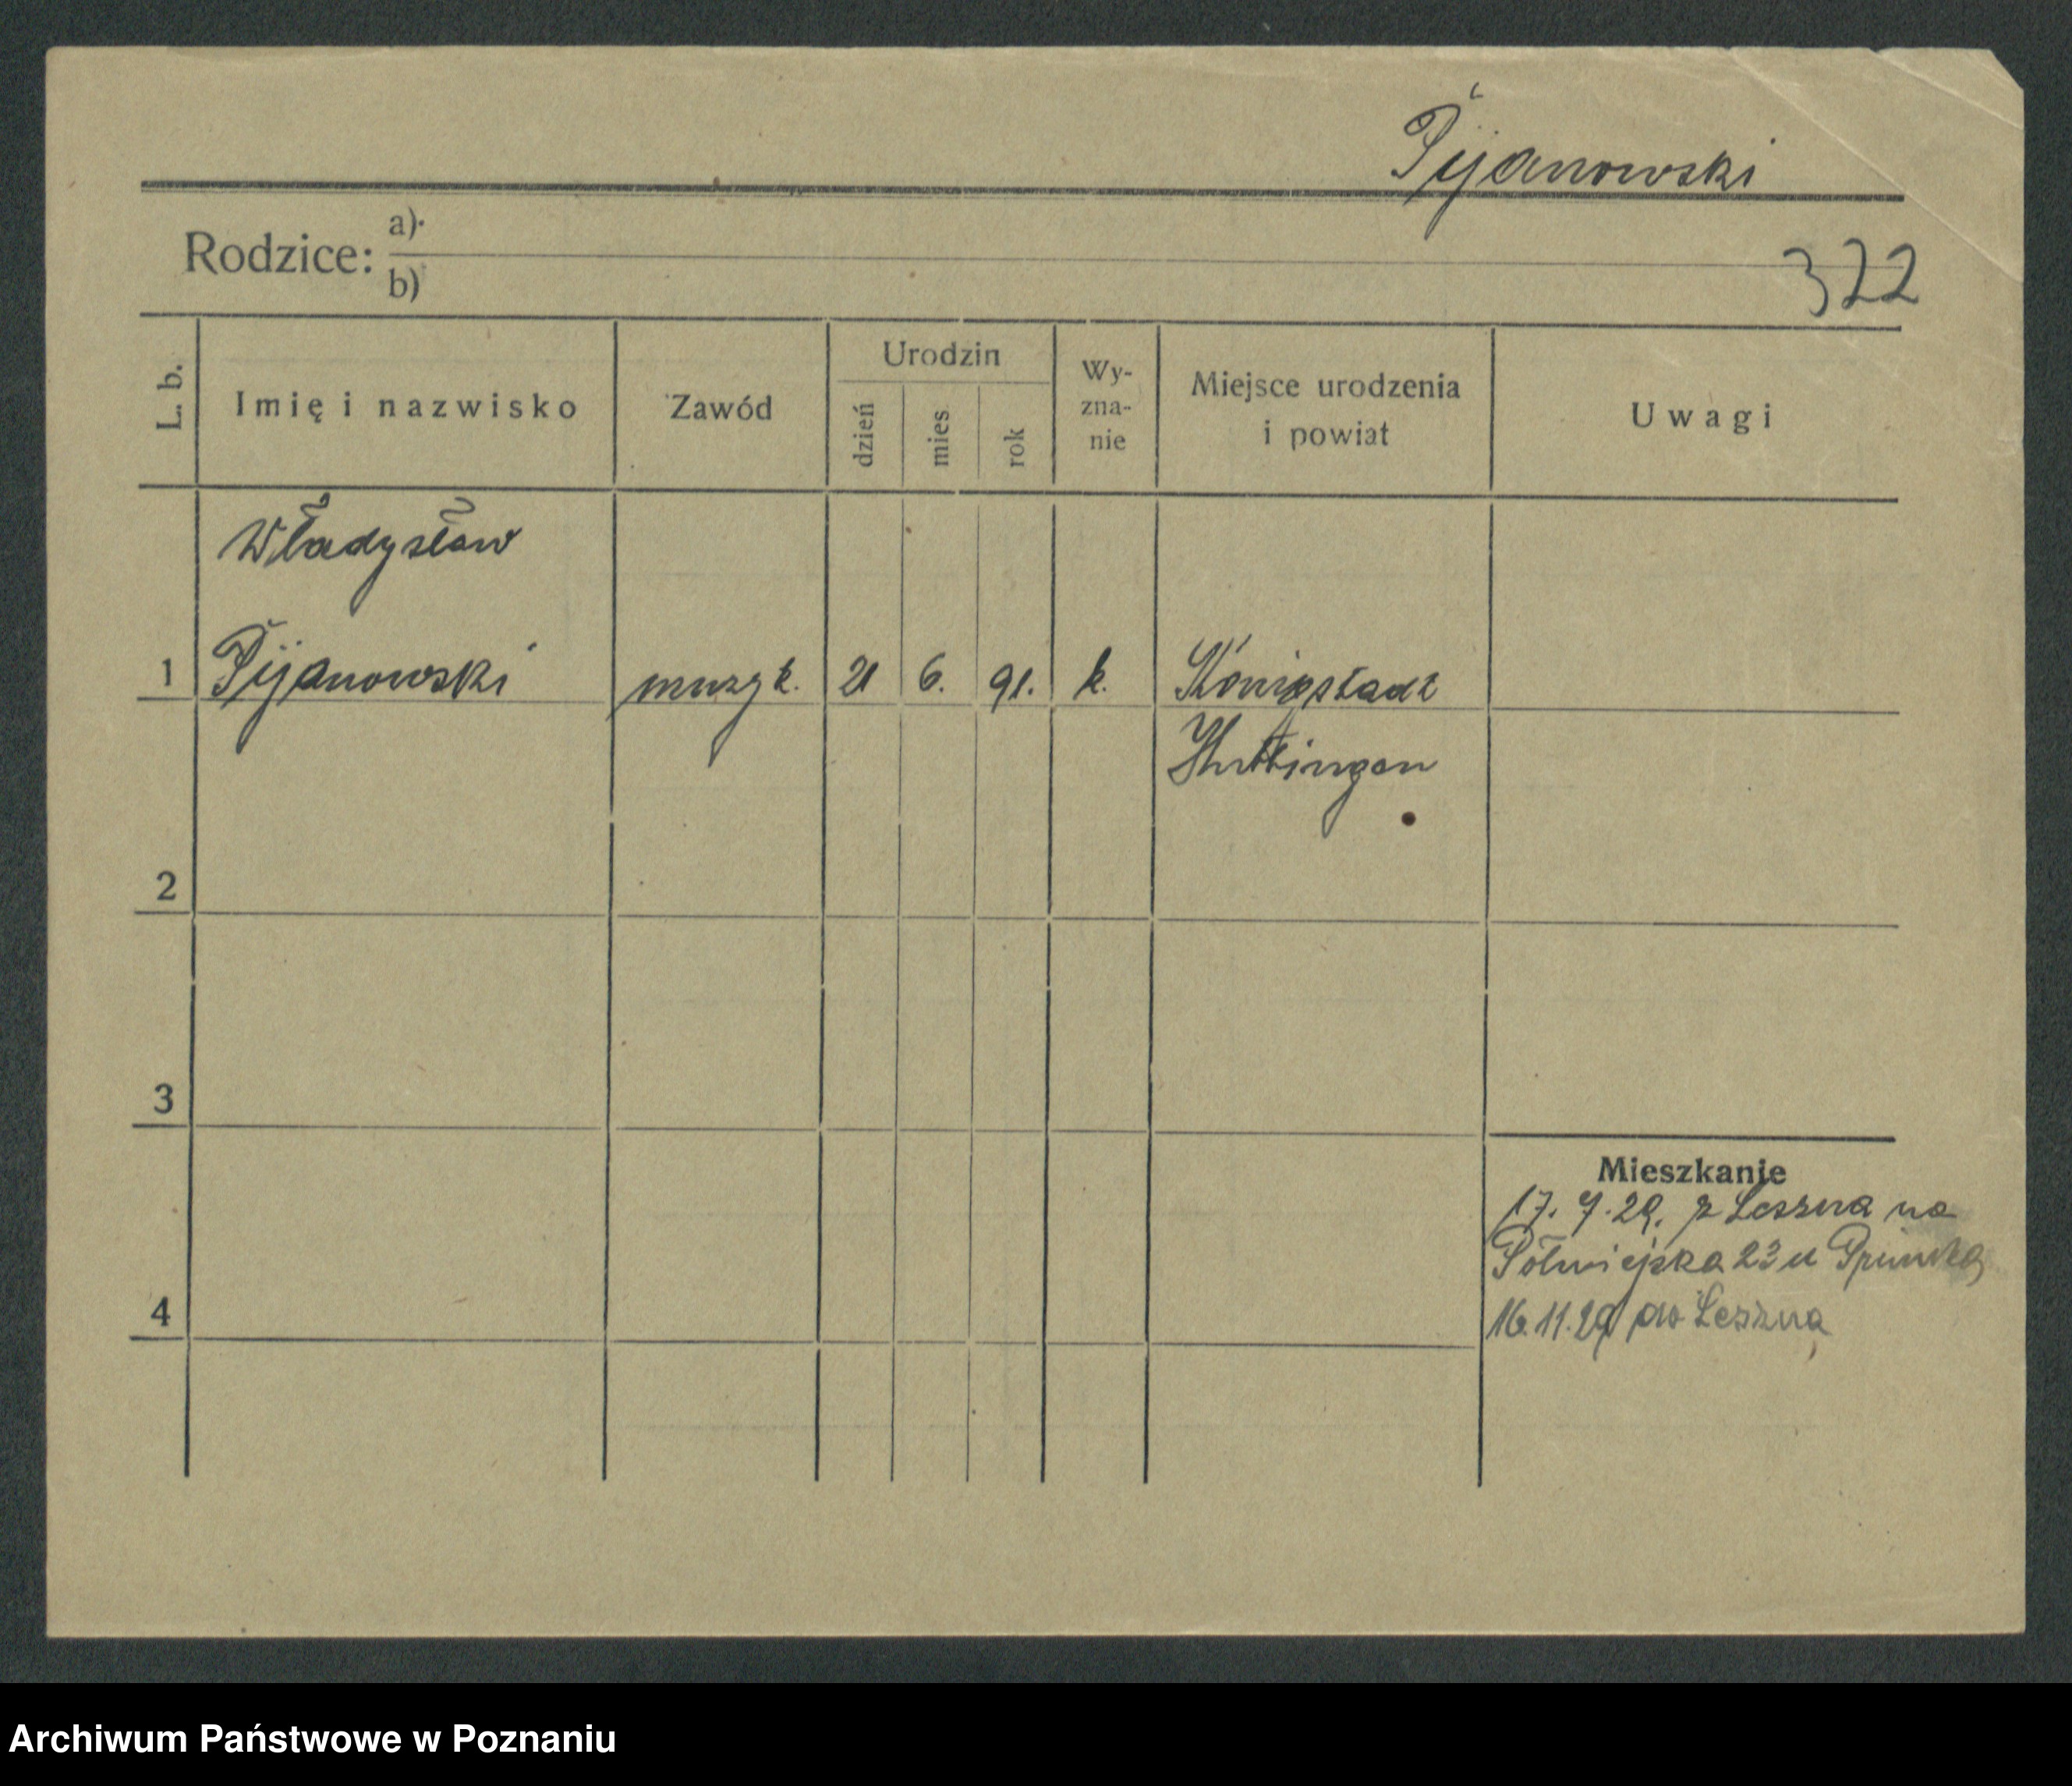 Pijanowski
Rodzice: a)
b)
322
L. b.
Imię i nazwisko
Zawód
Urodzin
dzień
mies.
rok
Wy-
zna-
nie
Miejsce urodzenia
i powiat
Uwagi
Władysław
1 Pijanowski muzyk. 21 6. 91. k. Königstadt
2
3
Mieszkanie
17. 7. 29. z Leszna na
Półwiejska 23 u
4
16.11.29 do Leszna
Archiwum Państwowe w Poznaniu